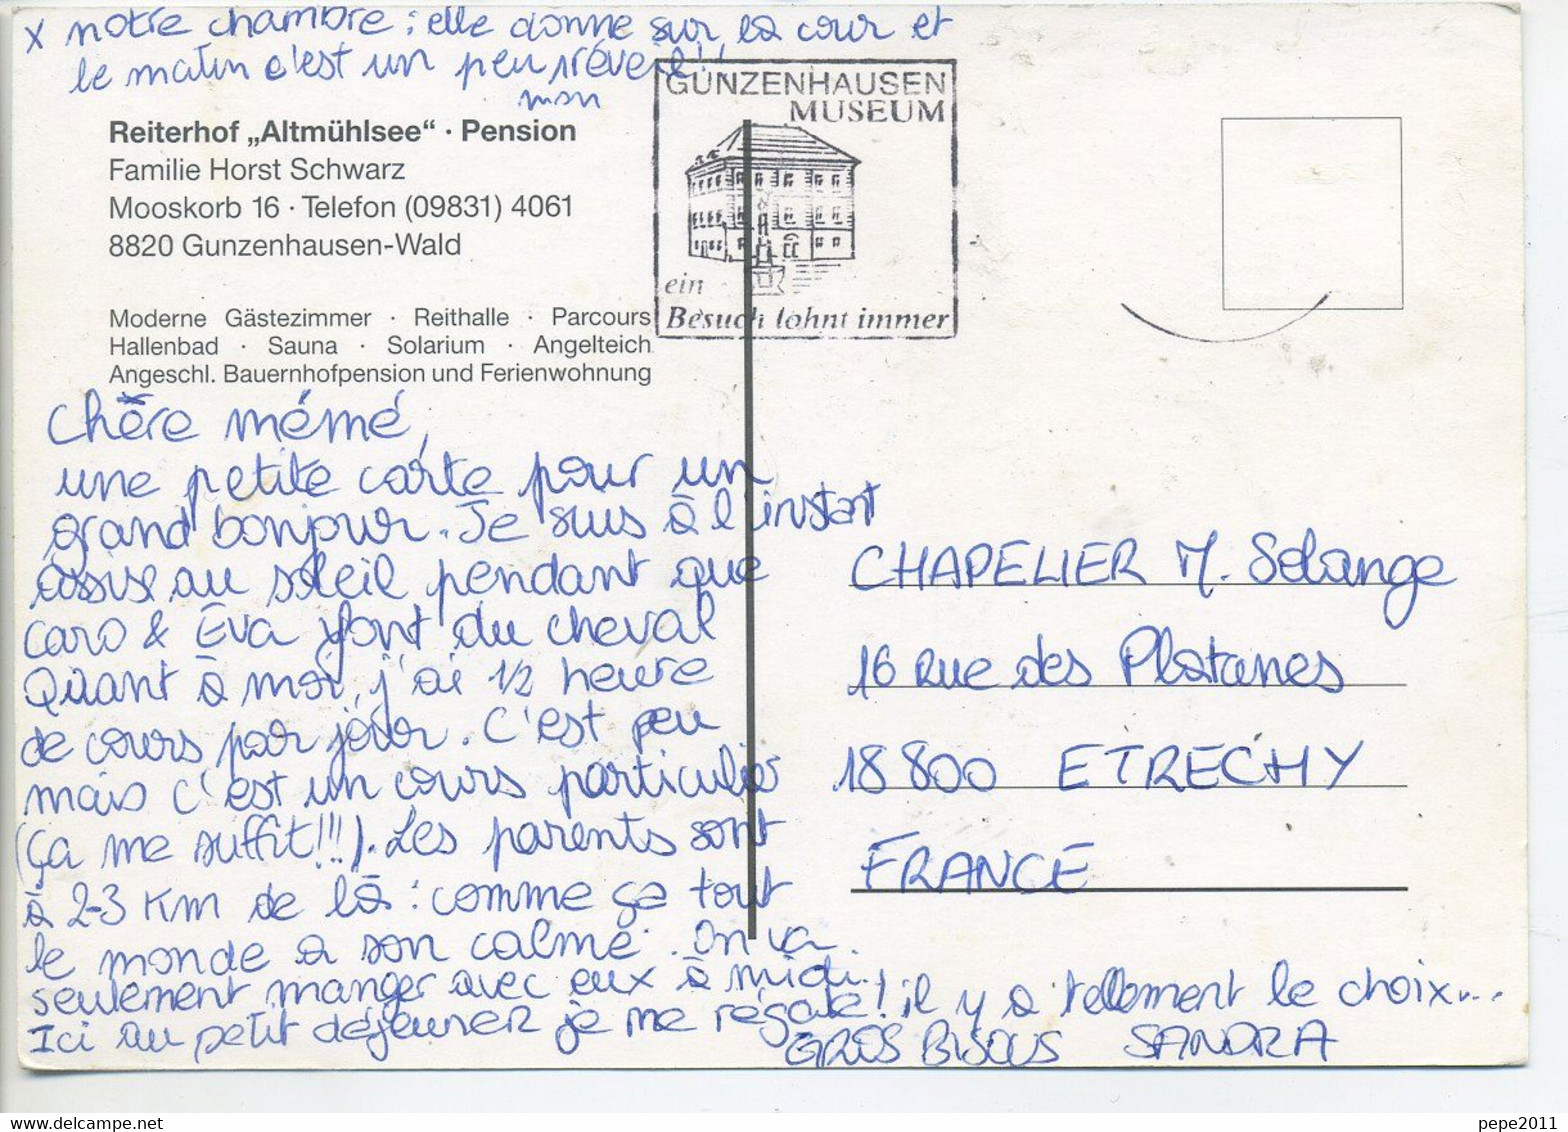 x notre chambre : elle donne sur la cour et
le matin c'est un peu réveil !
mon
Reiterhof „Altmühlsee“ · Pension
Familie Horst Schwarz
Mooskorb 16 · Telefon (09831) 4061
8820 Gunzenhausen-Wald
Moderne Gästezimmer · Reithalle · Parcours
Hallenbad · Sauna · Solarium · Angelteich
Angeschl. Bauernhofpension und Ferienwohnung
GUNZENHAUSEN
MUSEUM
ein
Besuch lohnt immer
Chère mémé,
une petite carte pour un
grand bonjour. Je suis à l'instant
assise au soleil pendant que
Caro & Eva font du cheval
Quant à moi, j'ai 1/2 heure
de cours par jour. C'est peu
mais c'est un cours particulier
(ça me suffit!!!). Les parents sont
à 2-3 Km de là : comme ça tout
le monde a son calme. On va
seulement manger avec eux à midi.
Ici au petit déjeuner je me régale ! il y a tellement le choix...
GROS BISOUS SANDRA
CHAPELIER M. Solange
16 Rue des Platanes
18 800 ETRECHY
FRANCE
pepe2011